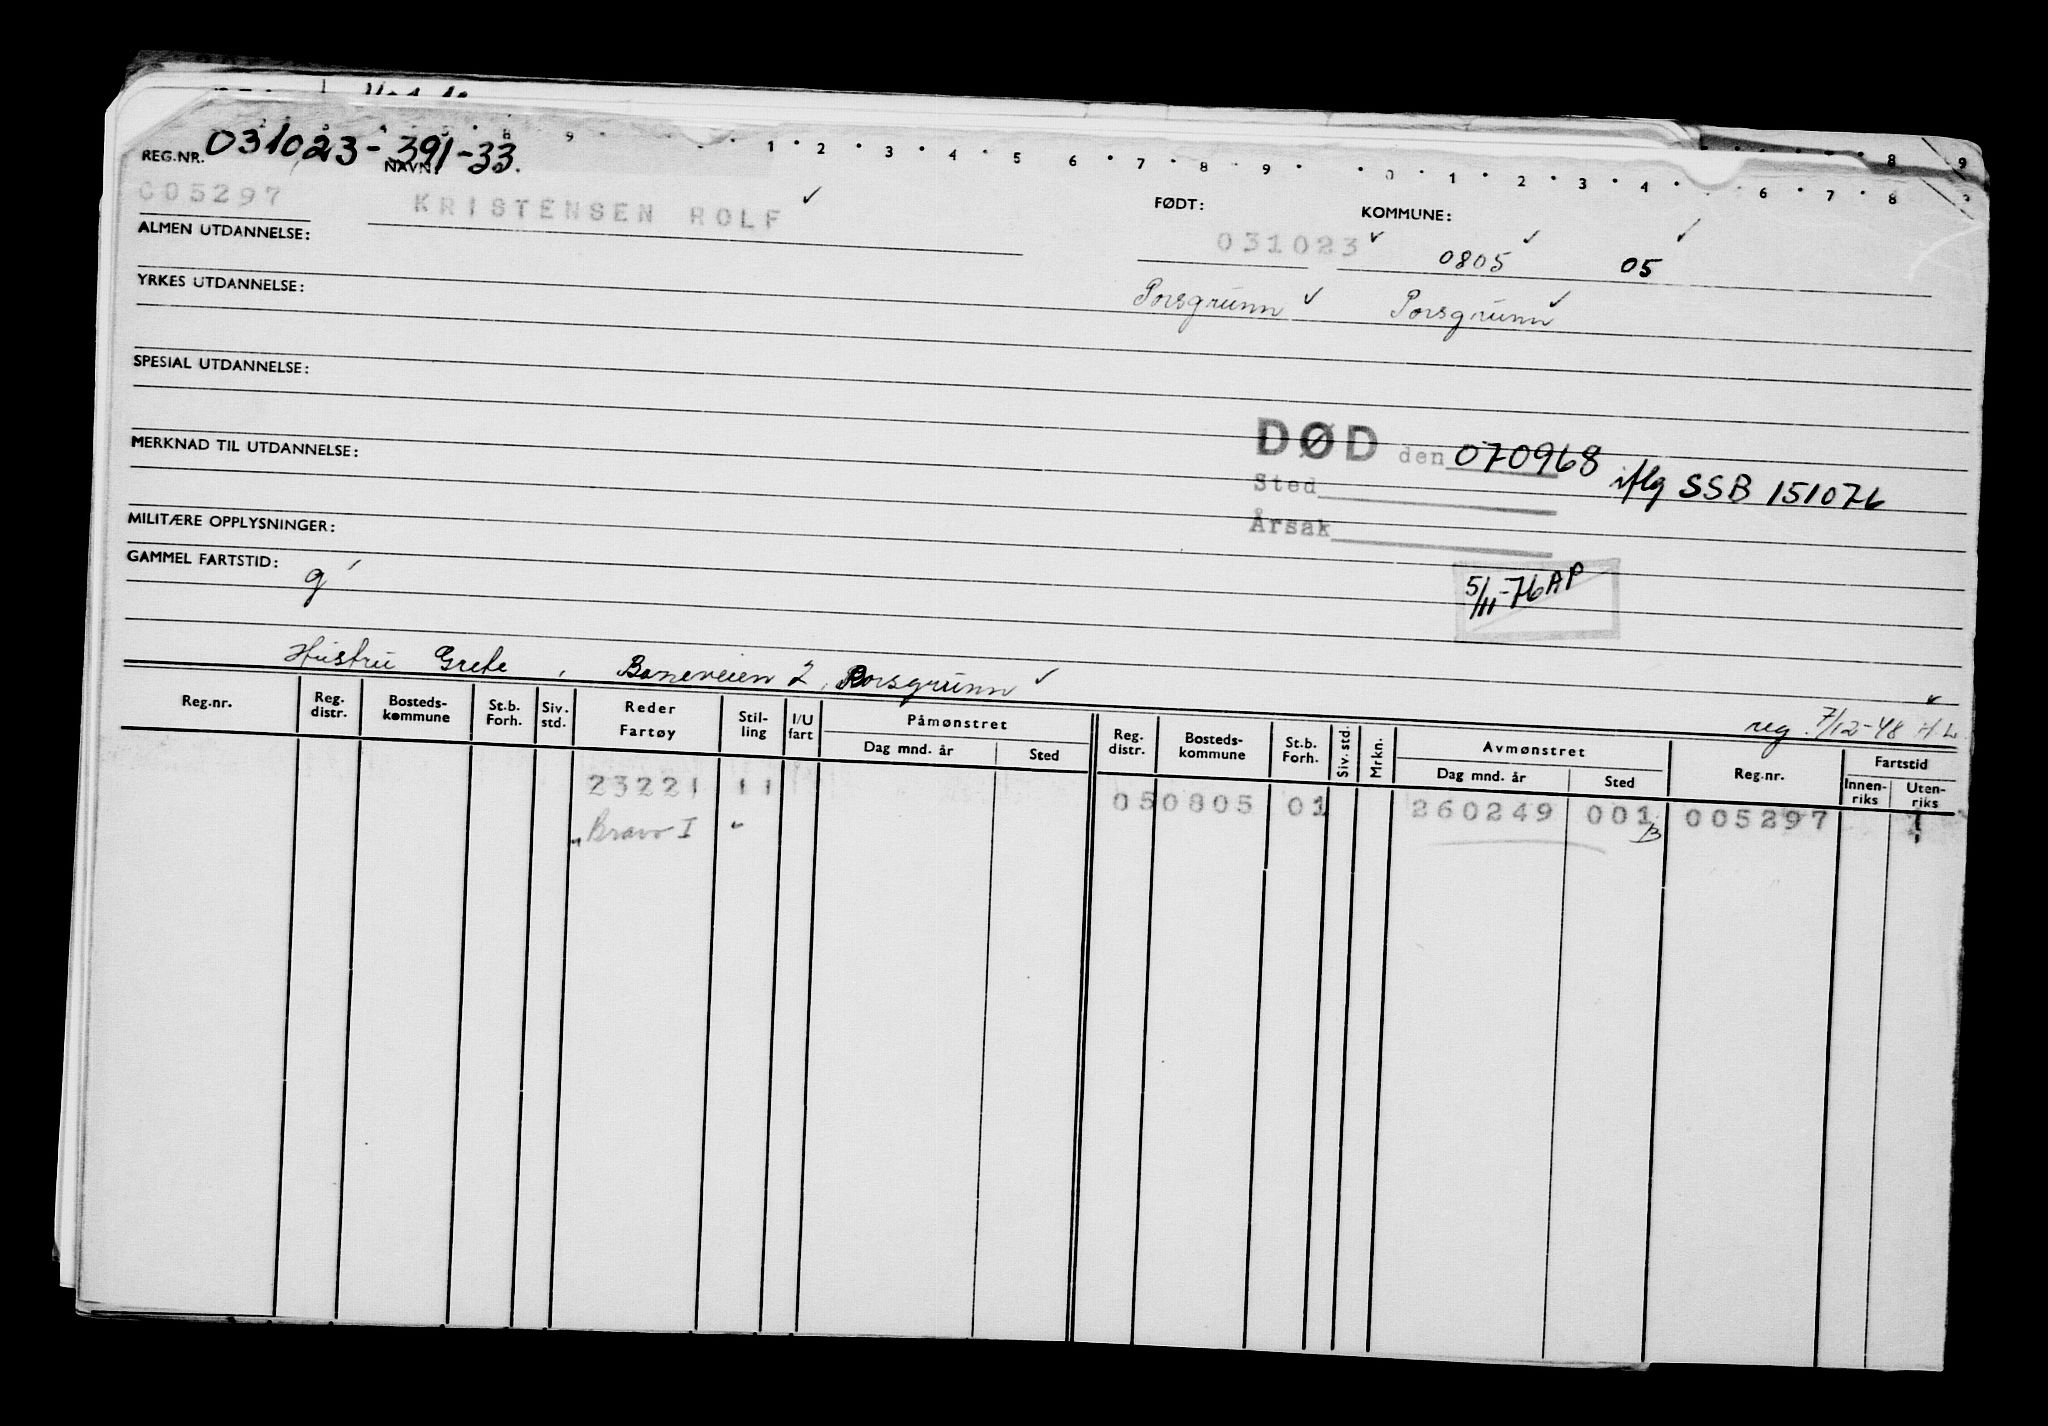 1 2 3 4 5 6 7 8 9 0 1 2 3 4 6 7 8
REG.NR. 031023-391-33.
NAVN:
005297 KRISTENSEN ROLF ✓
FØDT: KOMMUNE:
031023 ✓ 0805 ✓ 05 ✓
ALMEN UTDANNELSE:
Porsgrunn ✓ Porsgrunn ✓
YRKES UTDANNELSE:
SPESIAL UTDANNELSE:
DØD den 070968 iflg SSB 151076
MERKNAD TIL UTDANNELSE:
Sted
Årsak
MILITÆRE OPPLYSNINGER:
GAMMEL FARTSTID: g
5/11-76 AP
Hustru Grete , Baneveien 2, Porsgrunn ✓
reg. 7/12-48 H.L.
Reg.nr. Reg. distr. Bosteds-kommune St.b. Forh. Siv. std. Reder Fartøy Stil-ling I/U fart Påmønstret Dag mnd. år Sted Reg. distr. Bosteds-kommune St.b. Forh. Siv. std. Mrkn. Avmønstret Dag mnd. år Sted Reg.nr. Fartstid Innen-riks Uten-riks
23221 11 05 0805 01 260249 001 005297
" Bravo I "